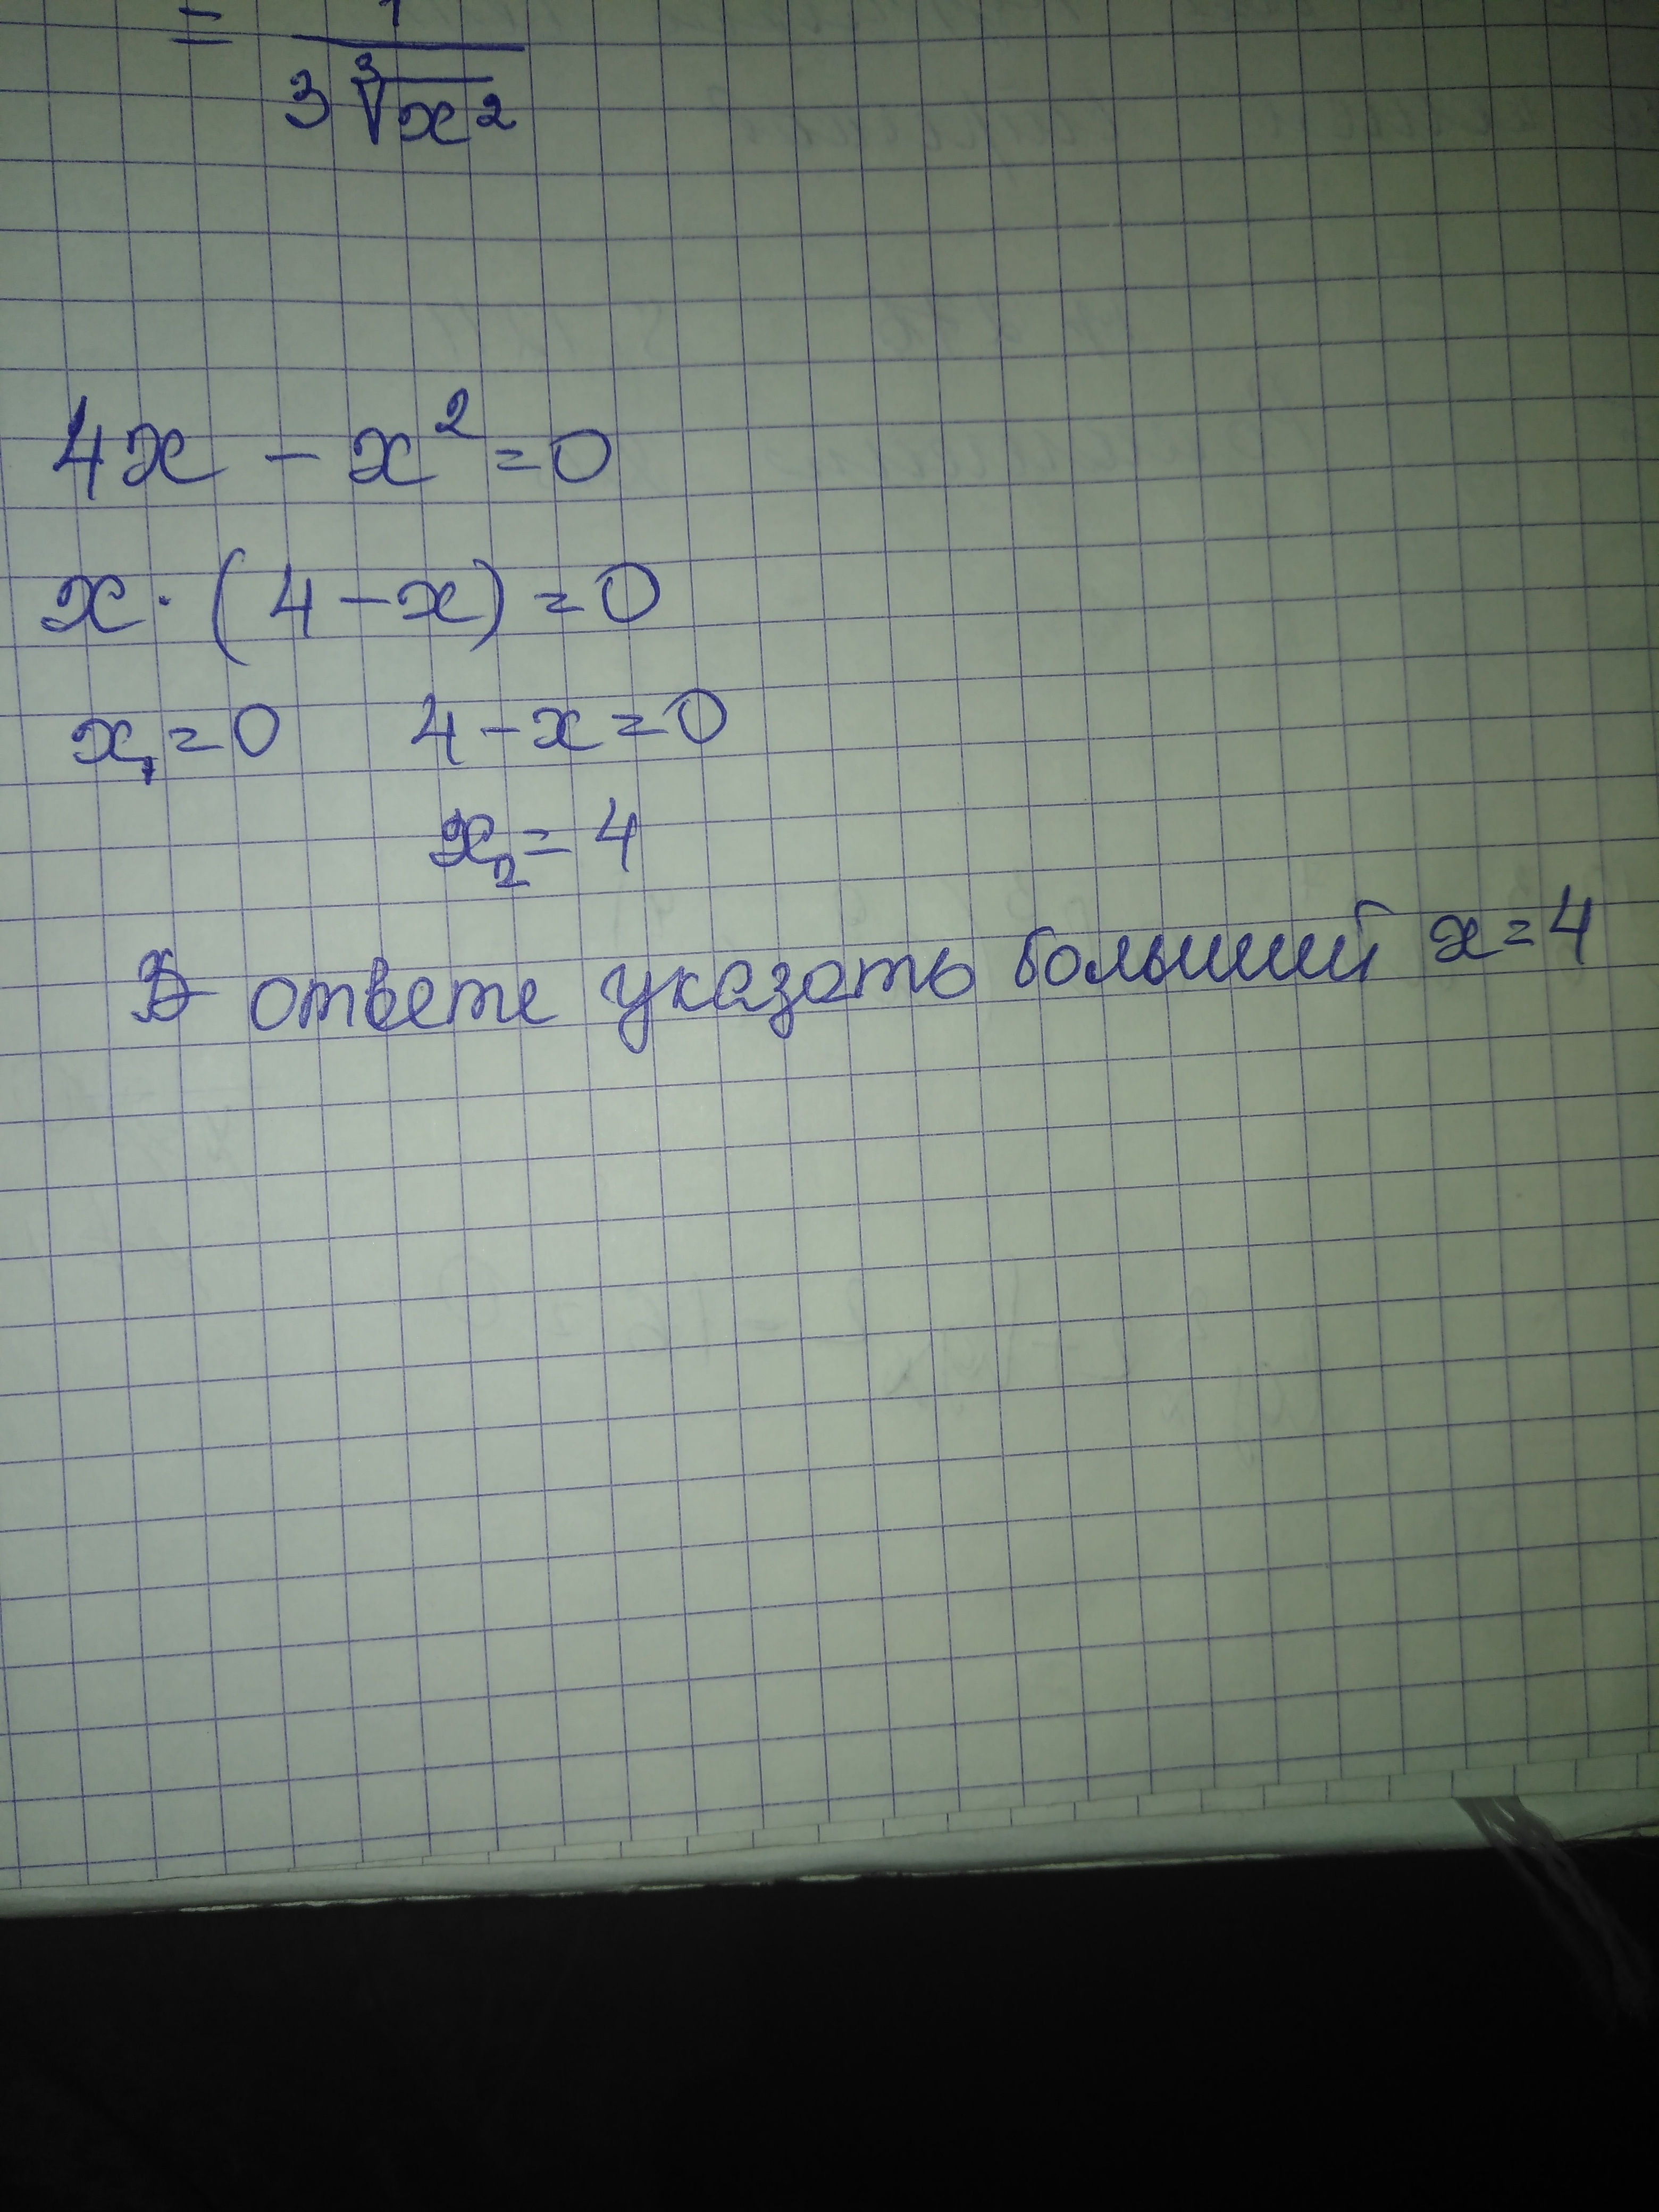 = 1
3 ∛x²
4x - x² = 0
x · (4 - x) = 0
x₁ = 0 4 - x = 0
x₂ = 4
В ответе указать больший x = 4